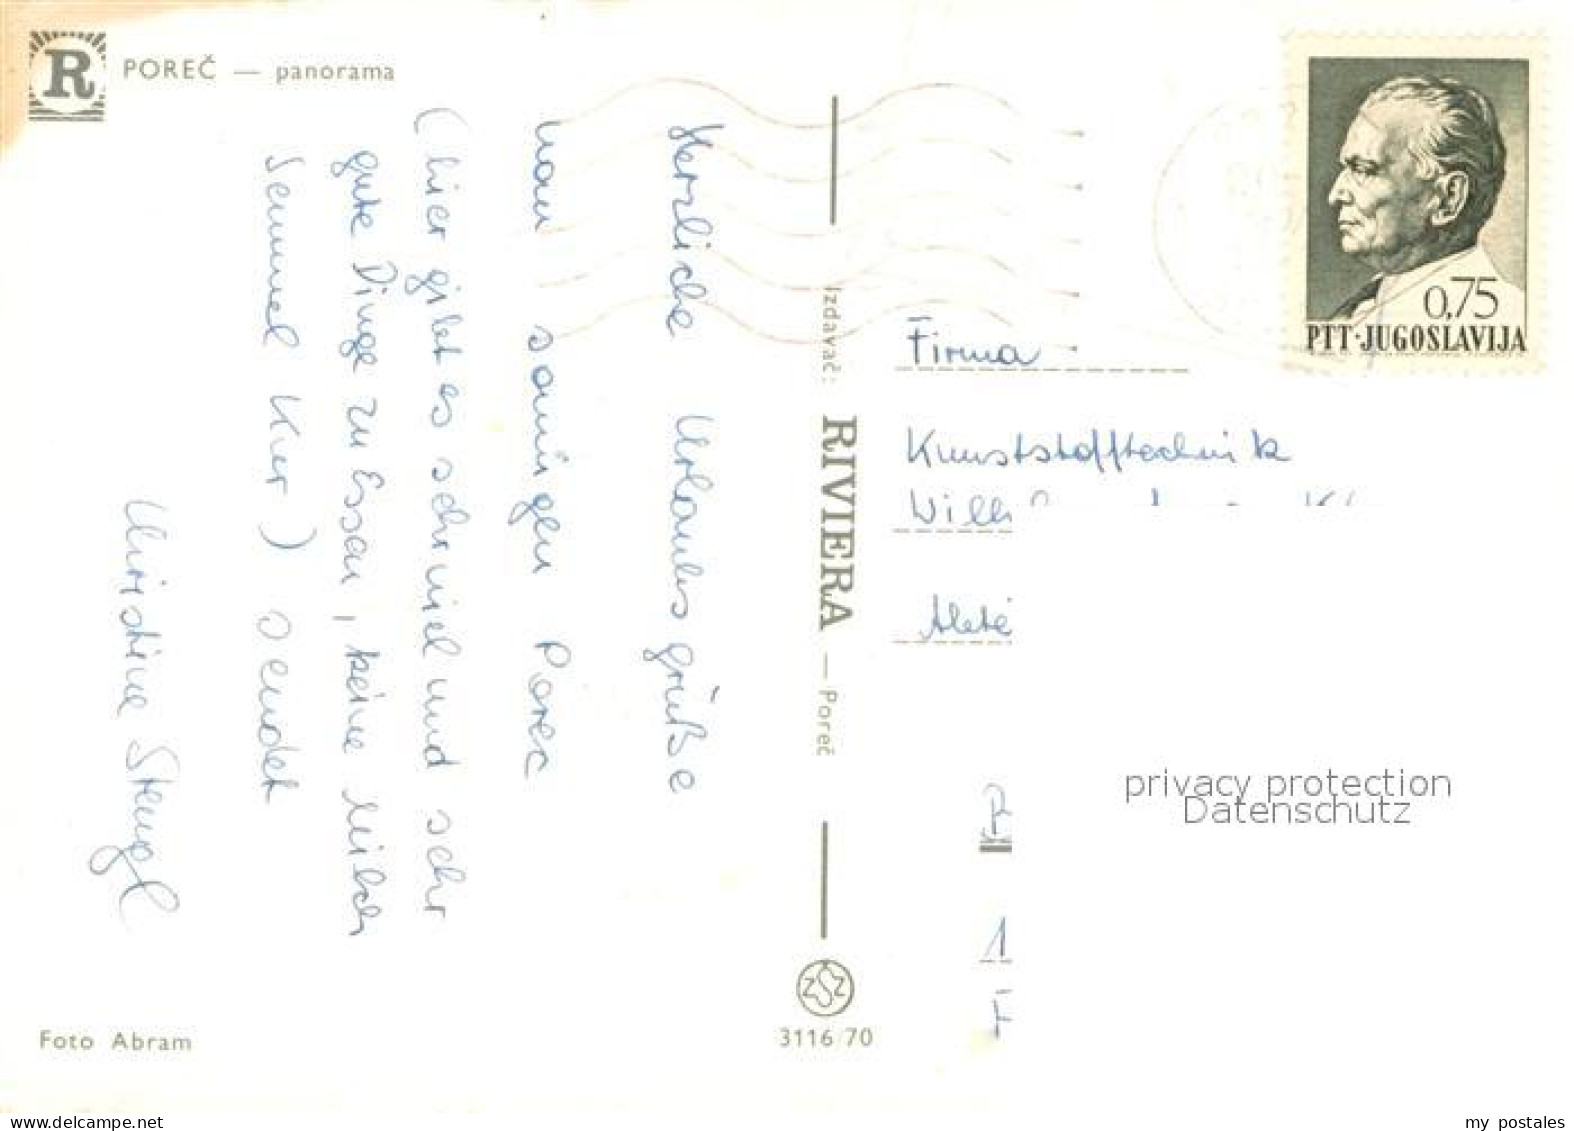 POREČ — panorama
R
Herzliche Urlaubsgrüße
vom sonnigen Porec
(hier gibt es sehr viel und sehr
gute Dinge zu Essen, keine Milch
Semmel Kur) sendet
Christine Stengl
Foto Abram
Izdavač: RIVIERA — Poreč
3116/70
0,75
PTT·JUGOSLAVIJA
Firma
Kunststofftechnik
privacy protection
Datenschutz
my postales